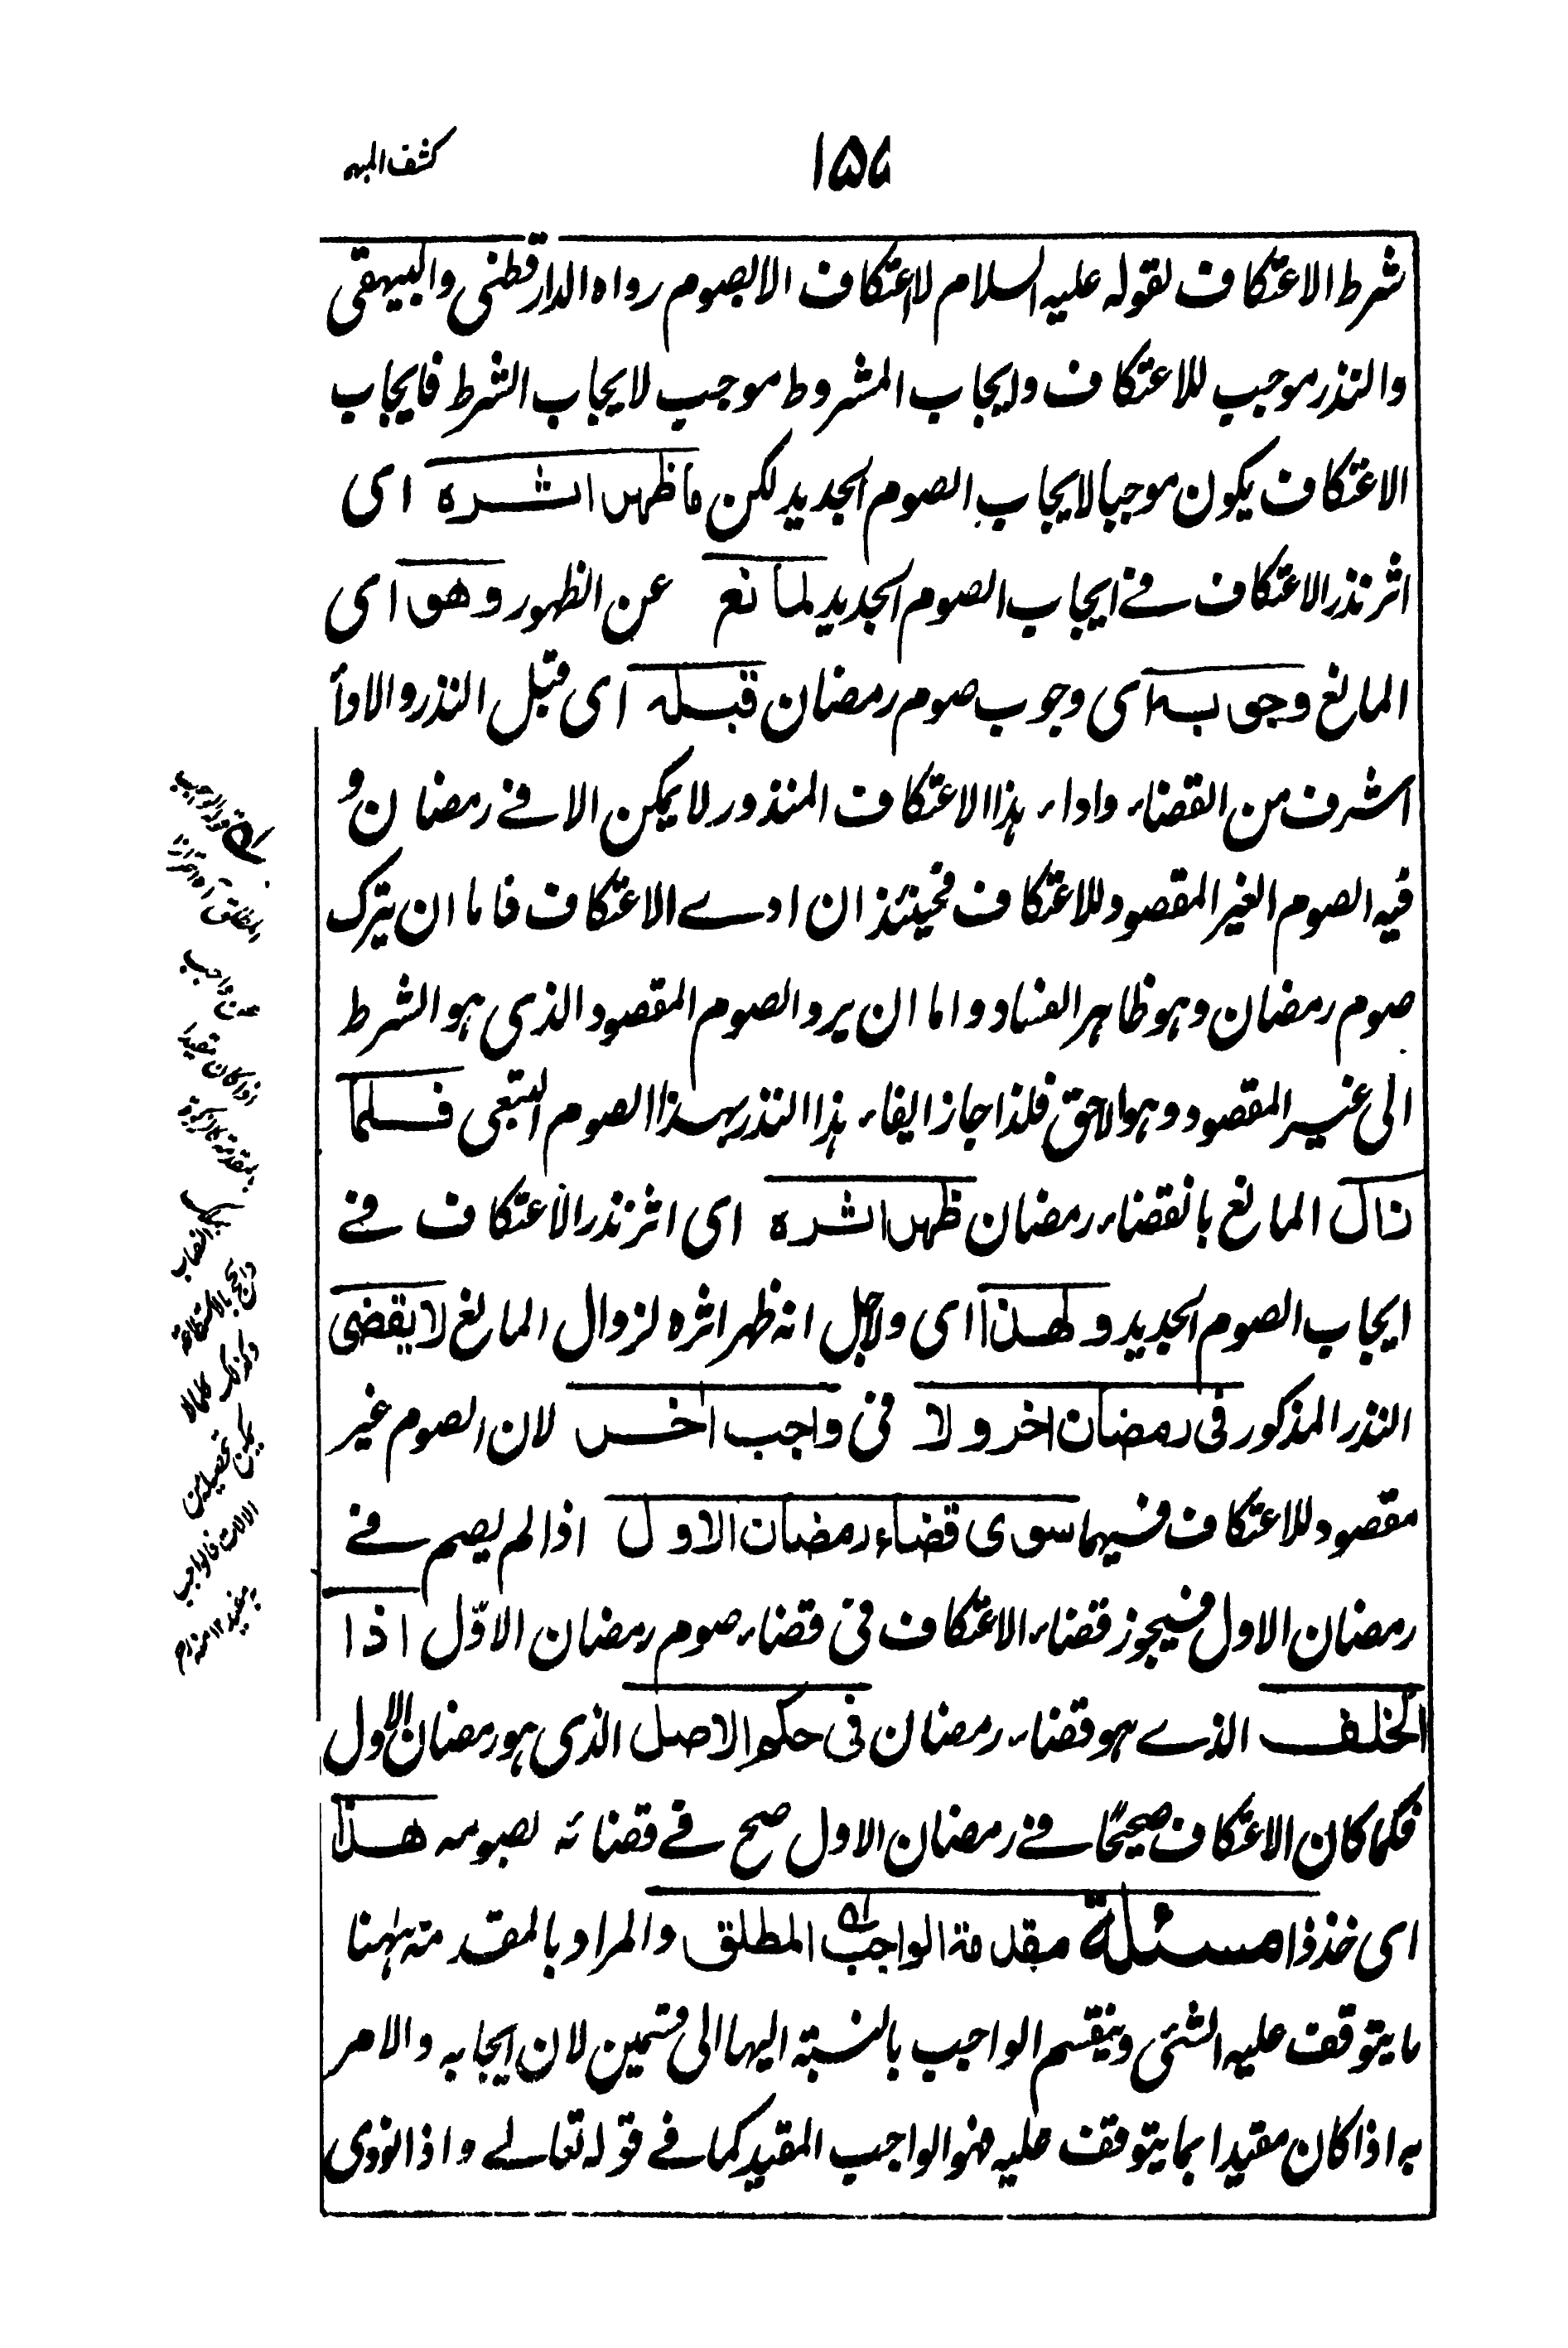 ۱۵۷
كشف المبهم
شرط الاعتكاف لقوله عليه السلام لا اعتكاف الا بصوم رواه الدارقطني والبيهقي
والنذر موجب للاعتكاف وايجاب المشروط موجب لايجاب الشرط فايجاب
الاعتكاف يكون موجبا لايجاب الصوم الجديد لكن ما ظهر اثره اى
اثر نذر الاعتكاف في ايجاب الصوم الجديد لمانع عن الظهور وهو اى
المانع وجوبه اى وجوب صوم رمضان قبله اى قبل النذر والاداء
اشرف من القضاء واداء هذا الاعتكاف المنذور لا يمكن الا في رمضان و
فيه الصوم الغير المقصود للاعتكاف فحينئذ ان ادے الاعتكاف فاما ان يترك
صوم رمضان وهو ظاهر الفساد واما ان يرد الصوم المقصود الذي هو الشرط
الى غير المقصود وهو لاحق فلذا جاز ايفاء هذا النذر بهذا الصوم التبعي فلما
زال المانع بانقضاء رمضان ظهر اثره اى اثر نذر الاعتكاف في
ايجاب الصوم الجديد ولهذا اى ولاجل انه ظهر اثره لزوال المانع لا يقضى
النذر المذكور في رمضان اخر ولا في واجب اخر لان الصوم غير
مقصود للاعتكاف فيهما سوى قضاء رمضان الاول اذا لم يصم في
رمضان الاول فيجوز قضاء الاعتكاف في قضاء صوم رمضان الاوّل اذا
الخلف الذے هو قضاء رمضان في حكم الاصل الذي هو رمضان الاول
فكما كان الاعتكاف صحيحًا في رمضان الاول صح في قضائه بصومه هذا
اى خذ ذا مسئلة مقدمة الواجب المطلق والمراد بالمقدمة ههنا
ما يتوقف عليه الشئ وينقسم الواجب بالنسبة اليها الى قسمين لان ايجابه والامر
به اذا كان مقيدا بما يتوقف عليه فهو الواجب المقيد كما في قوله تعالے واذا نودى
قوله الواجب
المطلق آه احترازا
عن واجب
اذا كان مقيدا
بمقدمته كالزكوة
بملك النصاب
والحج بالاستطاعة
وكذلك كل ما لا
يمكن تحصيله من
الآلات فالواجب
به مقيد ۱۲ منه رح